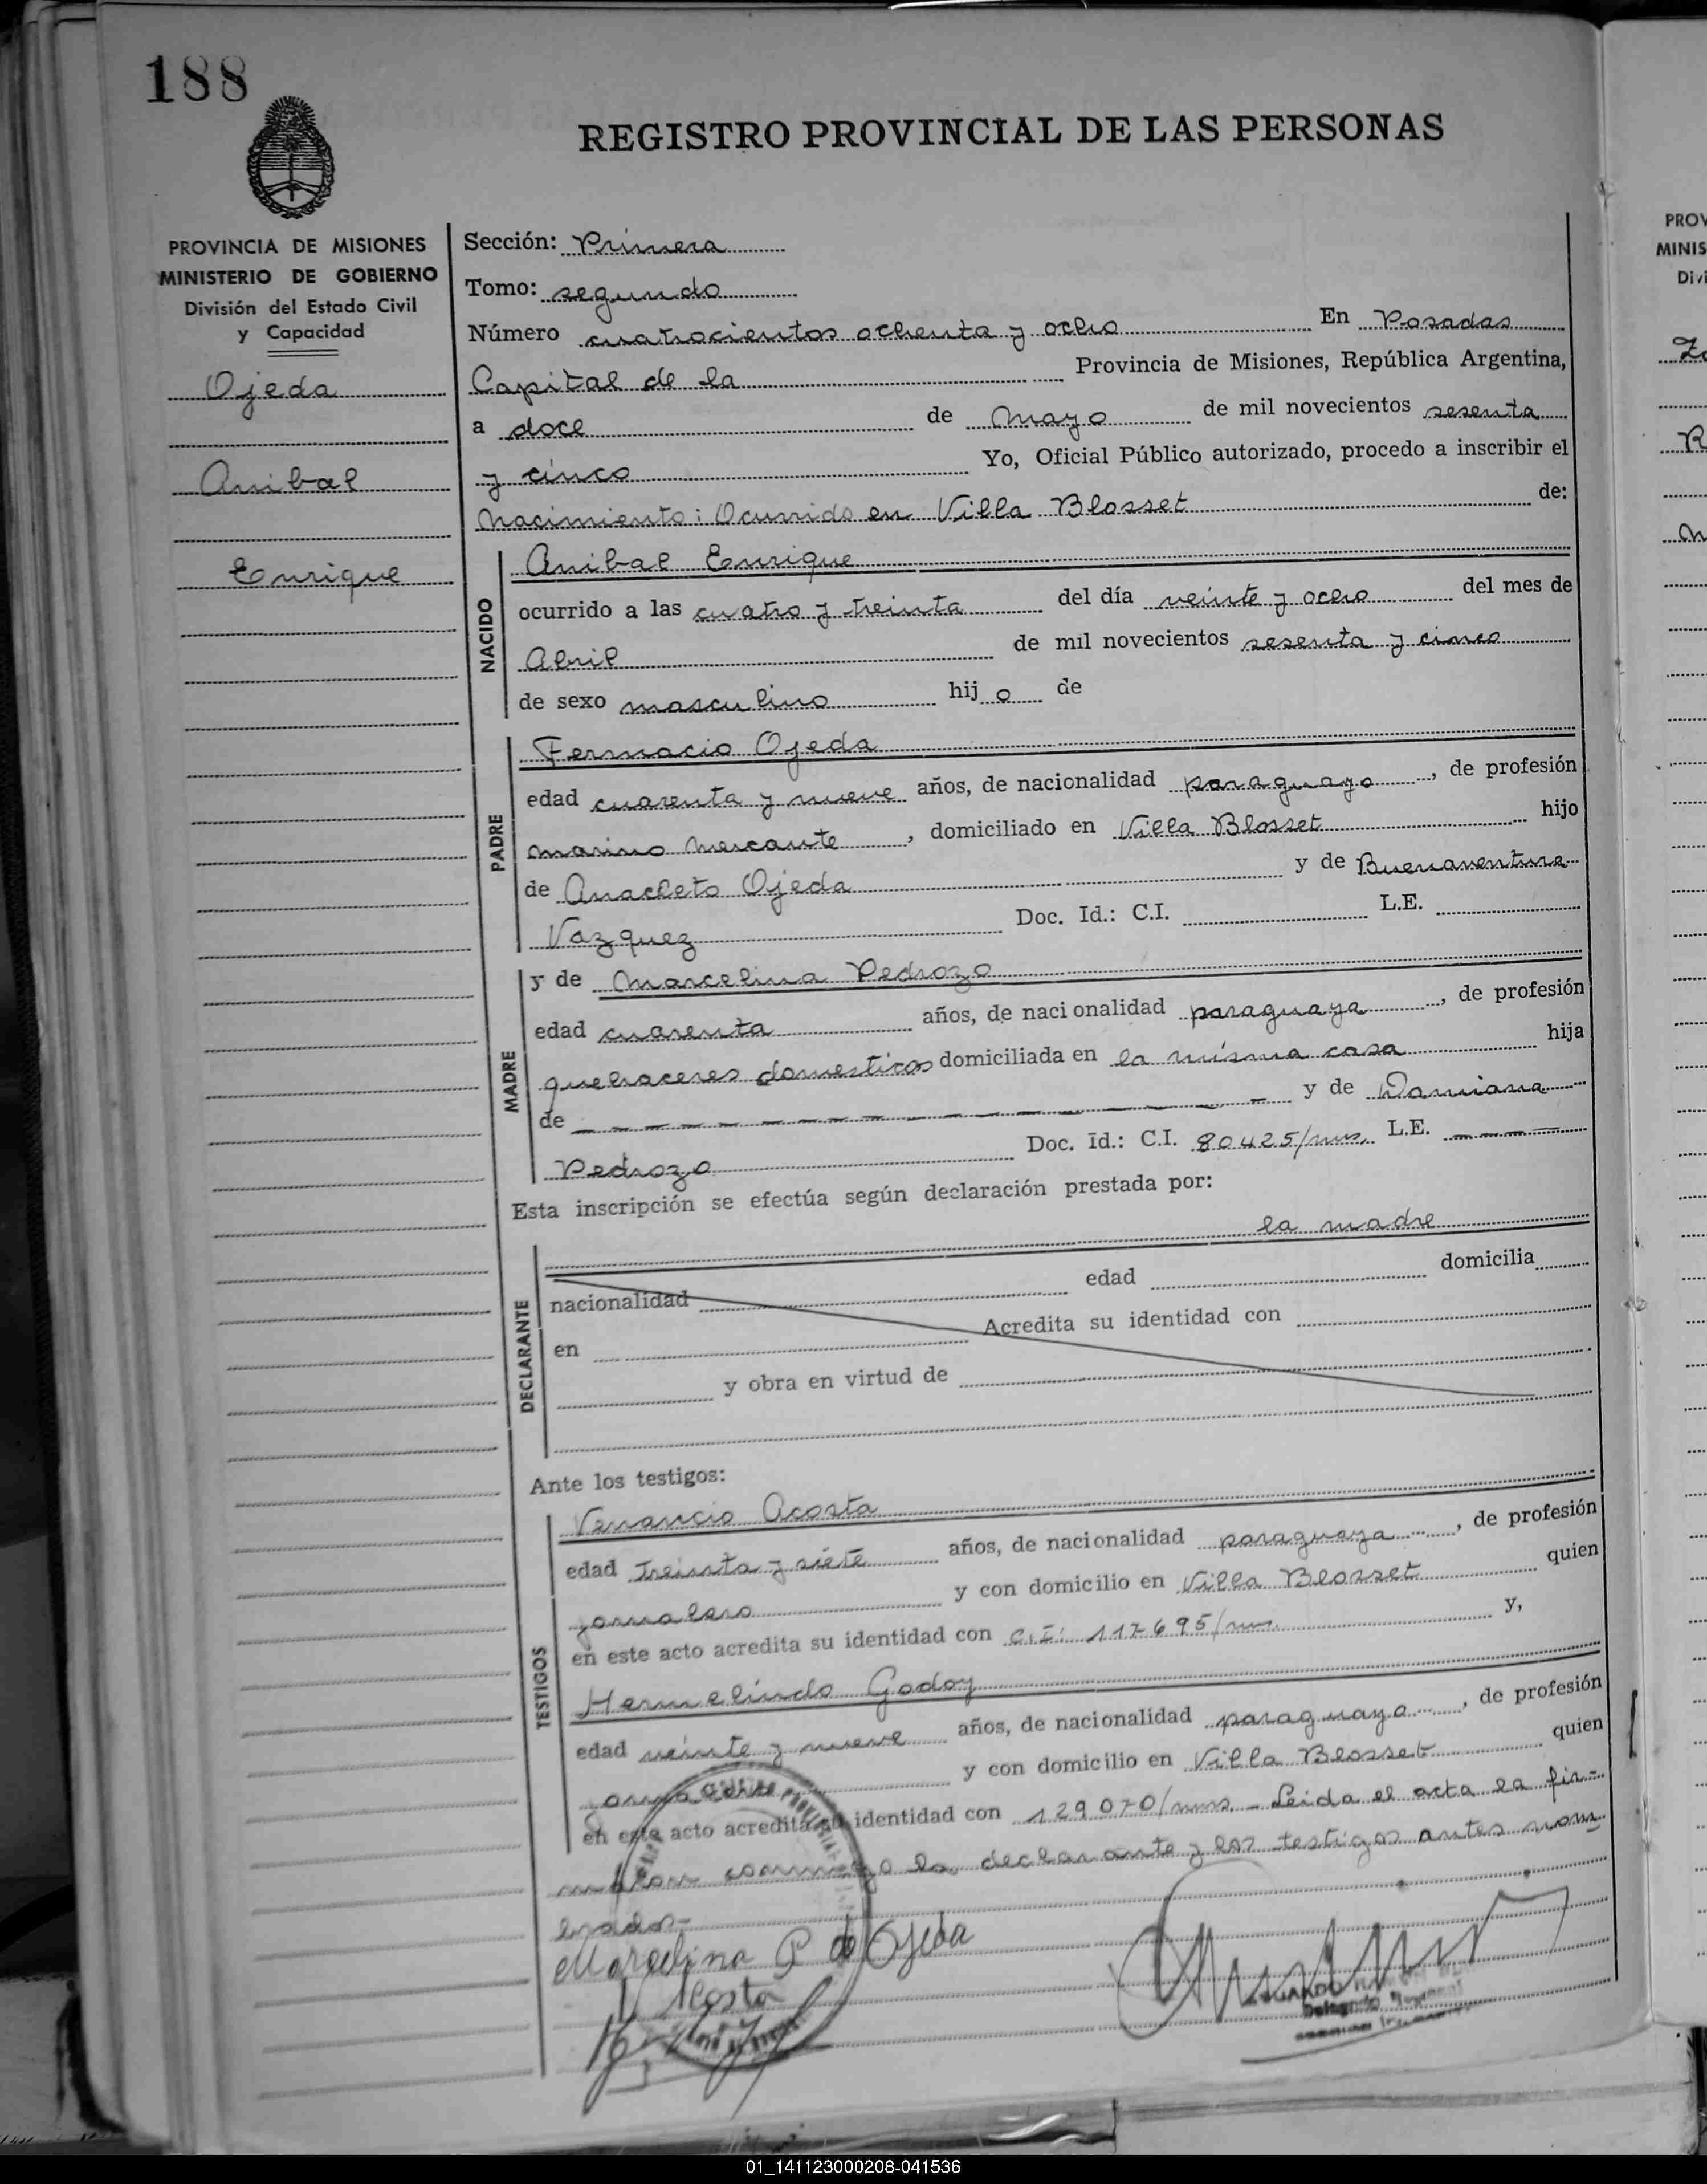 188
REGISTRO PROVINCIAL DE LAS PERSONAS
PROVINCIA DE MISIONES
MINISTERIO DE GOBIERNO
División del Estado Civil
y Capacidad
Ojeda
Anibal
Enrique
Sección: Primera
Tomo: segundo
Número cuatrocientos ochenta y ocho En Posadas
Capital de la Provincia de Misiones, República Argentina,
a doce de Mayo de mil novecientos sesenta
y cinco Yo, Oficial Público autorizado, procedo a inscribir el
Nacimiento: Ocurrido en Villa Blosset de:
NACIDO
Anibal Enrique
ocurrido a las cuatro y treinta del día veinte y ocho del mes de
Abril de mil novecientos sesenta y cinco
de sexo masculino hijo de
PADRE
Fermacio Ojeda
edad cuarenta y nueve años, de nacionalidad paraguayo, de profesión
marino mercante, domiciliado en Villa Blosset hijo
de Anacleto Ojeda y de Buenaventura
Vazquez Doc. Id.: C.I. L.E.
MADRE
y de Marcelina Pedrozo
edad cuarenta años, de nacionalidad paraguaya, de profesión
quehaceres domesticos domiciliada en la misma casa hija
de — — — — — — — — — — — y de Damiana
Pedrozo Doc. Id.: C.I. 80425/mns. L.E. — — — —
Esta inscripción se efectúa según declaración prestada por:
la madre
DECLARANTE
nacionalidad edad domicilia
en Acredita su identidad con
y obra en virtud de
Ante los testigos:
TESTIGOS
Venancio Acosta
edad treinta y siete años, de nacionalidad paraguaya, de profesión
jornalero y con domicilio en Villa Blosset quien
en este acto acredita su identidad con C.I. 117695/mns. y,
Hermelindo Godoy
edad veinte y nueve años, de nacionalidad paraguayo, de profesión
jornalero y con domicilio en Villa Blosset quien
en este acto acredita su identidad con 129070/mns. - Leida el acta la fir-
maron conmigo la declarante y los testigos antes nom
brados-
Marcelina P de Ojeda
V Acosta
Delegado
PROV
MINIS
Divi
01_141123000208-041536